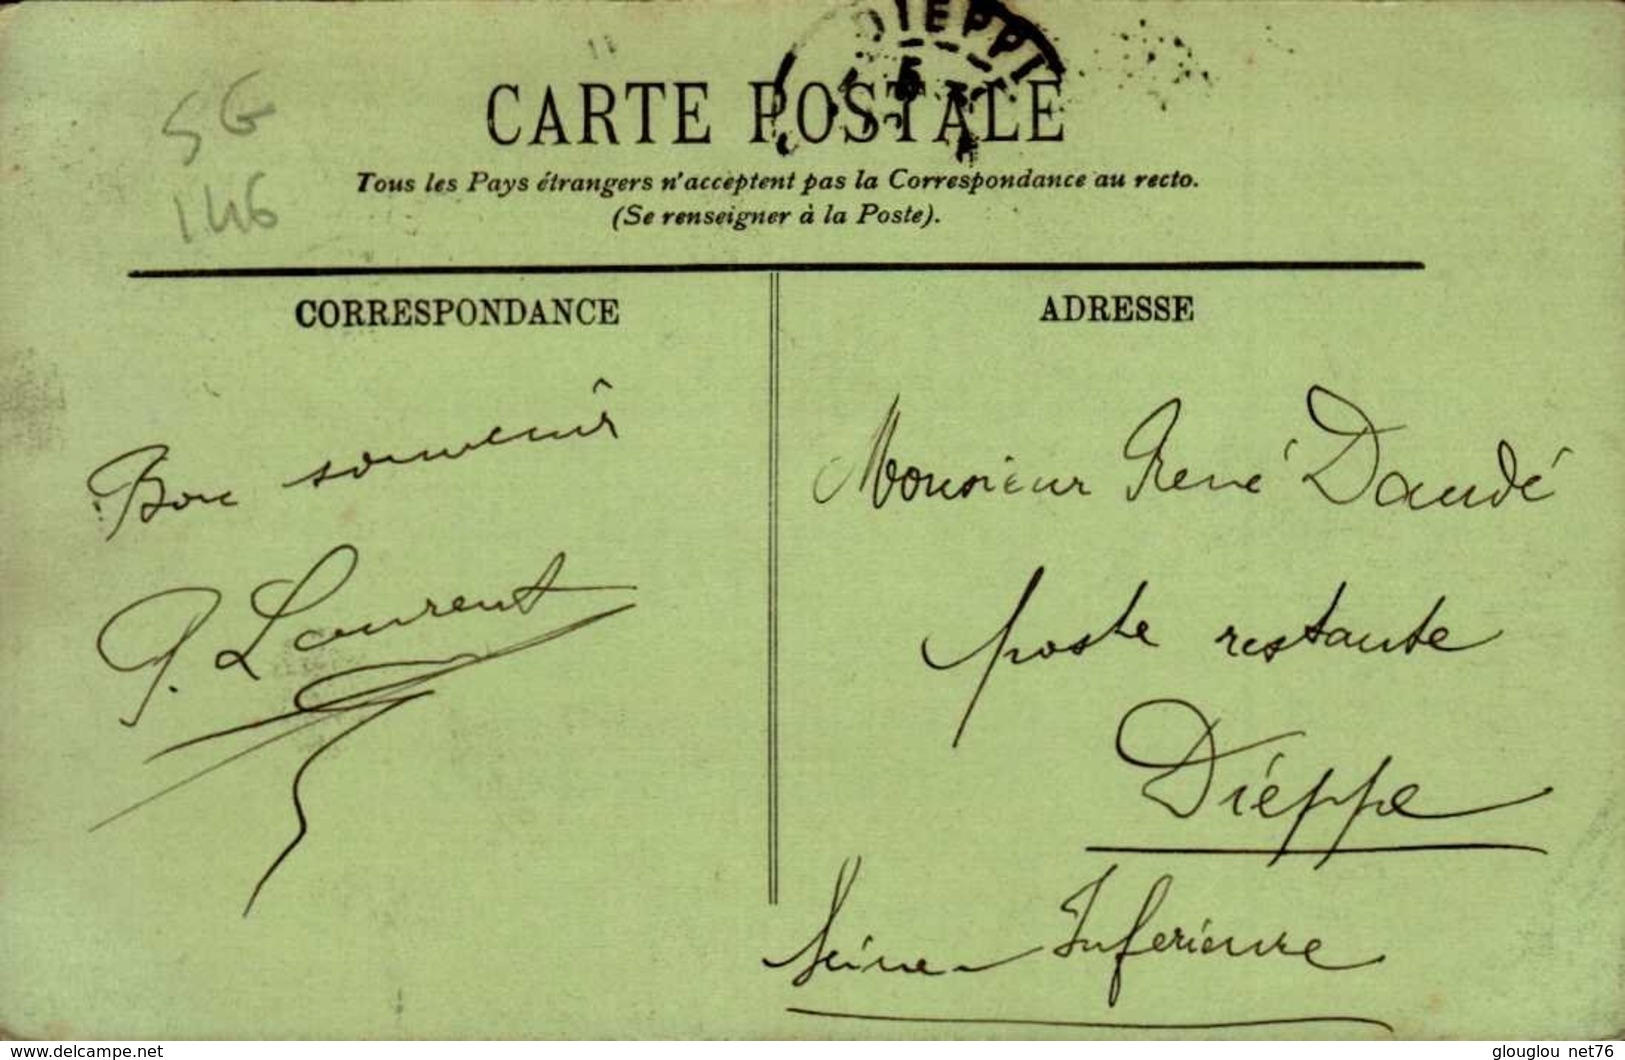 DIEPPE
5
SG
146
CARTE POSTALE
Tous les Pays étrangers n'acceptent pas la Correspondance au recto.
(Se renseigner à la Poste).
CORRESPONDANCE
ADRESSE
Bon souvenir
G. Laurent
Monsieur René Daudé
poste restante
Dieppe
Seine-Inférieure
www.delcampe.net
glouglou_net76